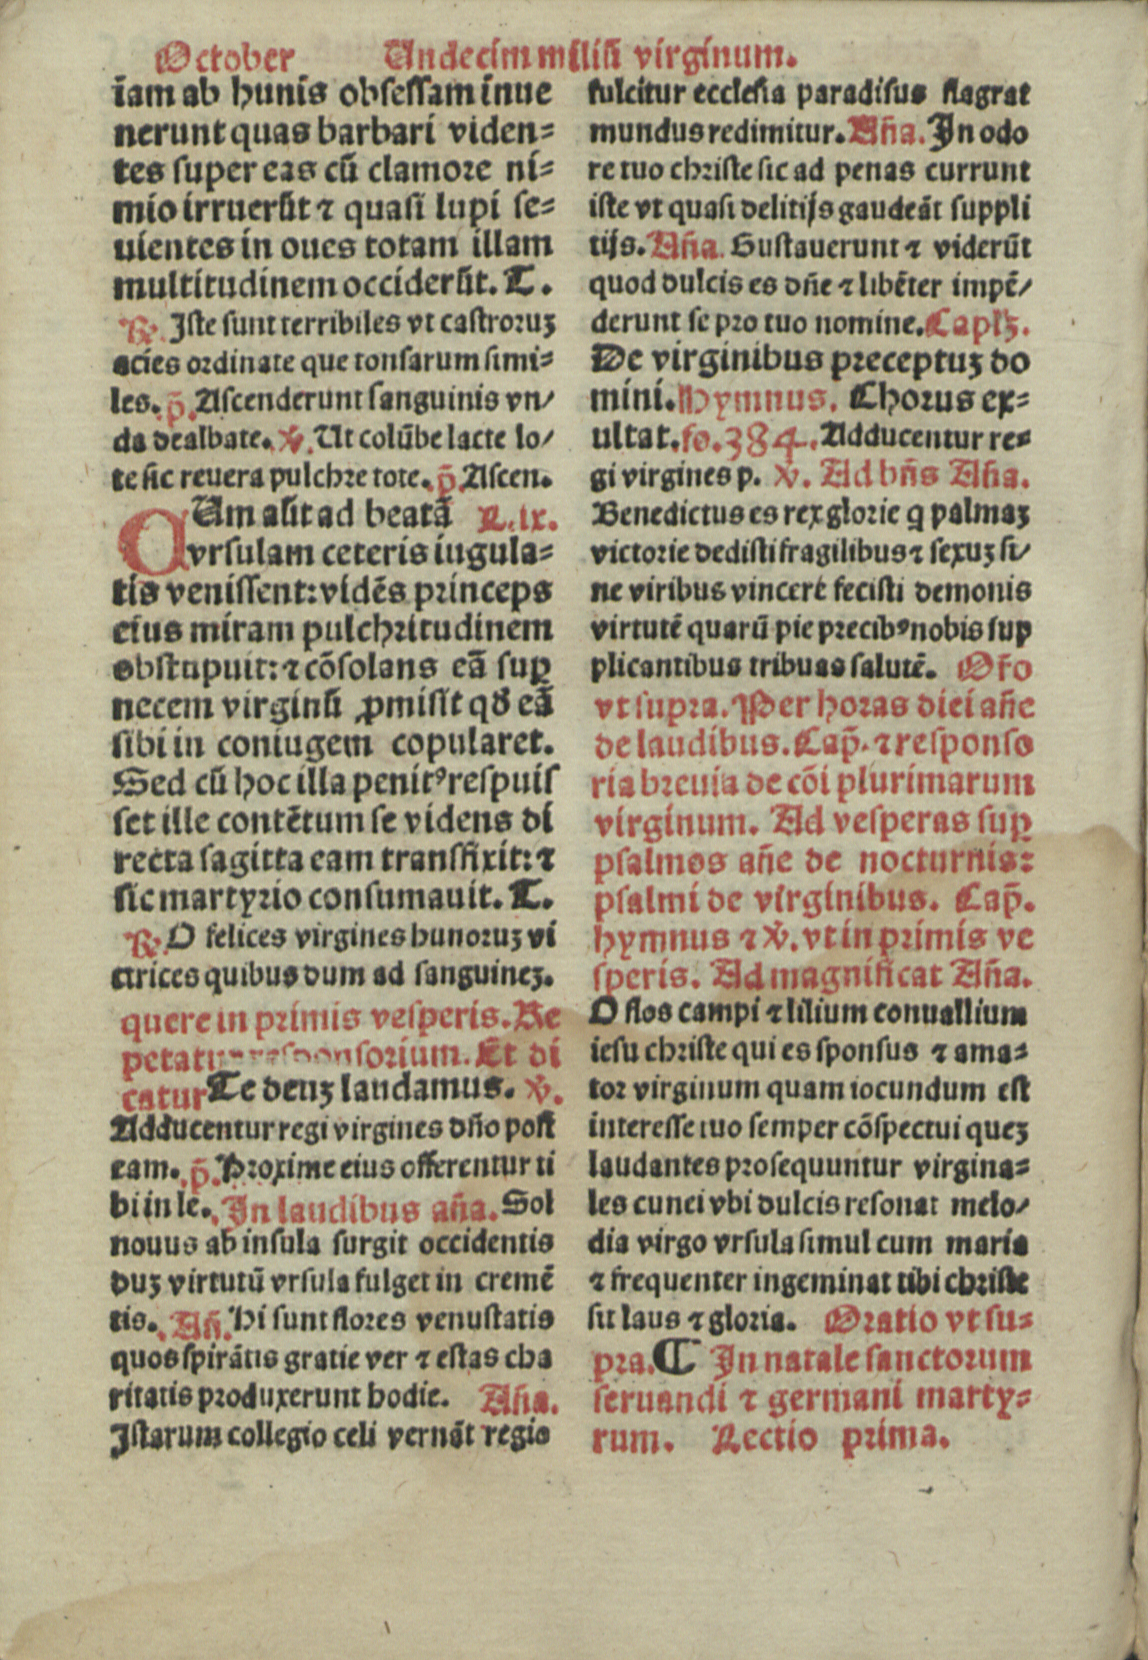 October Undecim miliū virginum.
iam ab hunis obsessam inue
nerunt quas barbari viden=
tes super eas cū clamore ni=
mio irruerūt ⁊ quasi lupi se=
uientes in oues totam illam
multitudinem occiderūt. T.
℟. Iste sunt terribiles vt castroruꝫ
acies ordinate que tonsarum simi=
les. p̄. Ascenderunt sanguinis vn/
da dealbate. ℣. Ut colūbe lacte lo/
te sic reuera pulchre tote. p̄. Ascen.
QUm aūt ad beatā L. ix.
vrsulam ceteris iugula=
tis venissent: vidēs princeps
eius miram pulchritudinem
obstupuit: ⁊ cōsolans eā suꝑ
necem virginū ꝓmisit qđ eā
sibi in coniugem copularet.
Sed cū hoc illa penitꝰ respuis
set ille contētum se videns di
recta sagitta eam transfixit: ⁊
sic martyrio consumauit. T.
℟. O felices virgines hunoruꝫ vi
ctrices quibus dum ad sanguineꝫ.
quere in primis vesperis. Re
petatur responsorium. Et di
catur Te deuꝫ laudamus. ℣.
Adducentur regi virgines dn̄o post
eam. p̄. Proxime eius offerentur ti
bi in le. In laudibus an̄a. Sol
nouus ab insula surgit occidentis
duꝫ virtutū vrsula fulget in cremē
tis. An̄. Hi sunt flores venustatis
quos spirātis gratie ver ⁊ estas cha
ritatis produxerunt hodie. An̄a.
Istarum collegio celi vernāt regio
fulcitur ecclesia paradisus flagrat
mundus redimitur. An̄a. In odo
re tuo christe sic ad penas currunt
iste vt quasi delitijs gaudeāt suppli
tijs. An̄a. Gustauerunt ⁊ viderūt
quod dulcis es dn̄e ⁊ libēter impē/
derunt se pro tuo nomine. Caplꝫ.
De virginibus preceptuꝫ do
mini. Hymnus. Chorus ex=
ultat. fo. 384. Adducentur re=
gi virgines p. ℣. Ad bn̄s An̄a.
Benedictus es rex glorie q palmaꝫ
victorie dedisti fragilibus ⁊ sexuꝫ si/
ne viribus vincere fecisti demonis
virtutē quarū pie precibꝰ nobis sup
plicantibus tribuas salutē. Or̄o
vt supra. Per horas diei an̄e
de laudibus. Cap̄. ⁊ responso
ria breuia de cōi plurimarum
virginum. Ad vesperas suꝑ
psalmos an̄e de nocturnis:
psalmi de virginibus. Cap̄.
hymnus ⁊ ℣. vt in primis ve
speris. Ad magnificat An̄a.
O flos campi ⁊ lilium conuallium
iesu christe qui es sponsus ⁊ ama=
tor virginum quam iocundum est
interesse tuo semper cōspectui queꝫ
laudantes prosequuntur virgina=
les cunei vbi dulcis resonat melo/
dia virgo vrsula simul cum maria
⁊ frequenter ingeminat tibi christe
sit laus ⁊ gloria. Oratio vt su=
pra. ¶ In natale sanctorum
seruandi ⁊ germani marty=
rum. Lectio prima.